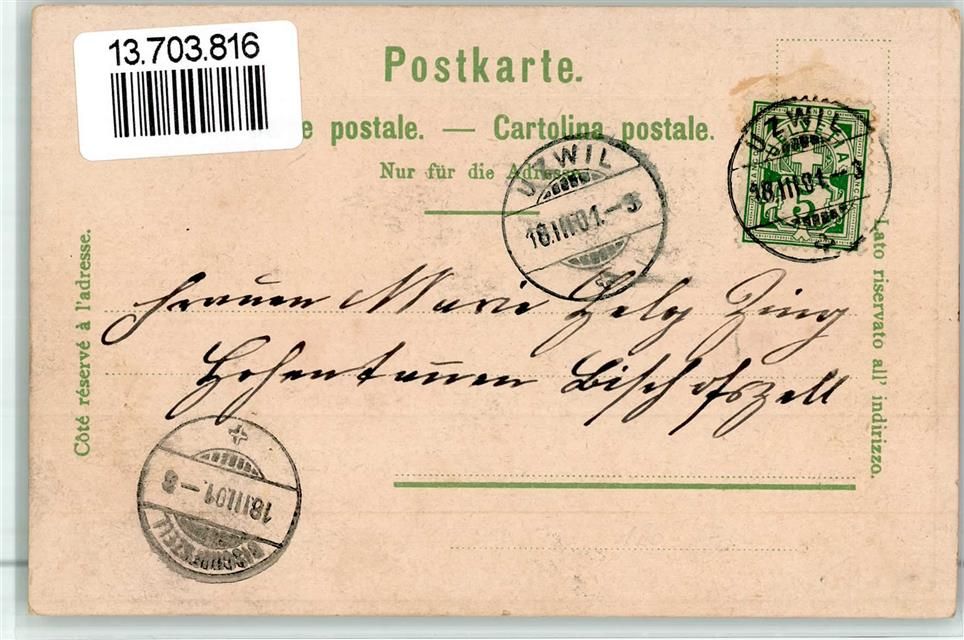 13.703.816
Postkarte.
e postale. — Cartolina postale.
Nur für die Adresse
UZWIL
18.III.01.–3
UZWIL
18.III.01.–3
HELVETIA
5
Côté réservé à l'adresse.
Lato riservato all' indirizzo.
Frauen Marie Helg Zing
Hohentannen Bischofszell
18.III.01.–8
BISCHOFSZELL